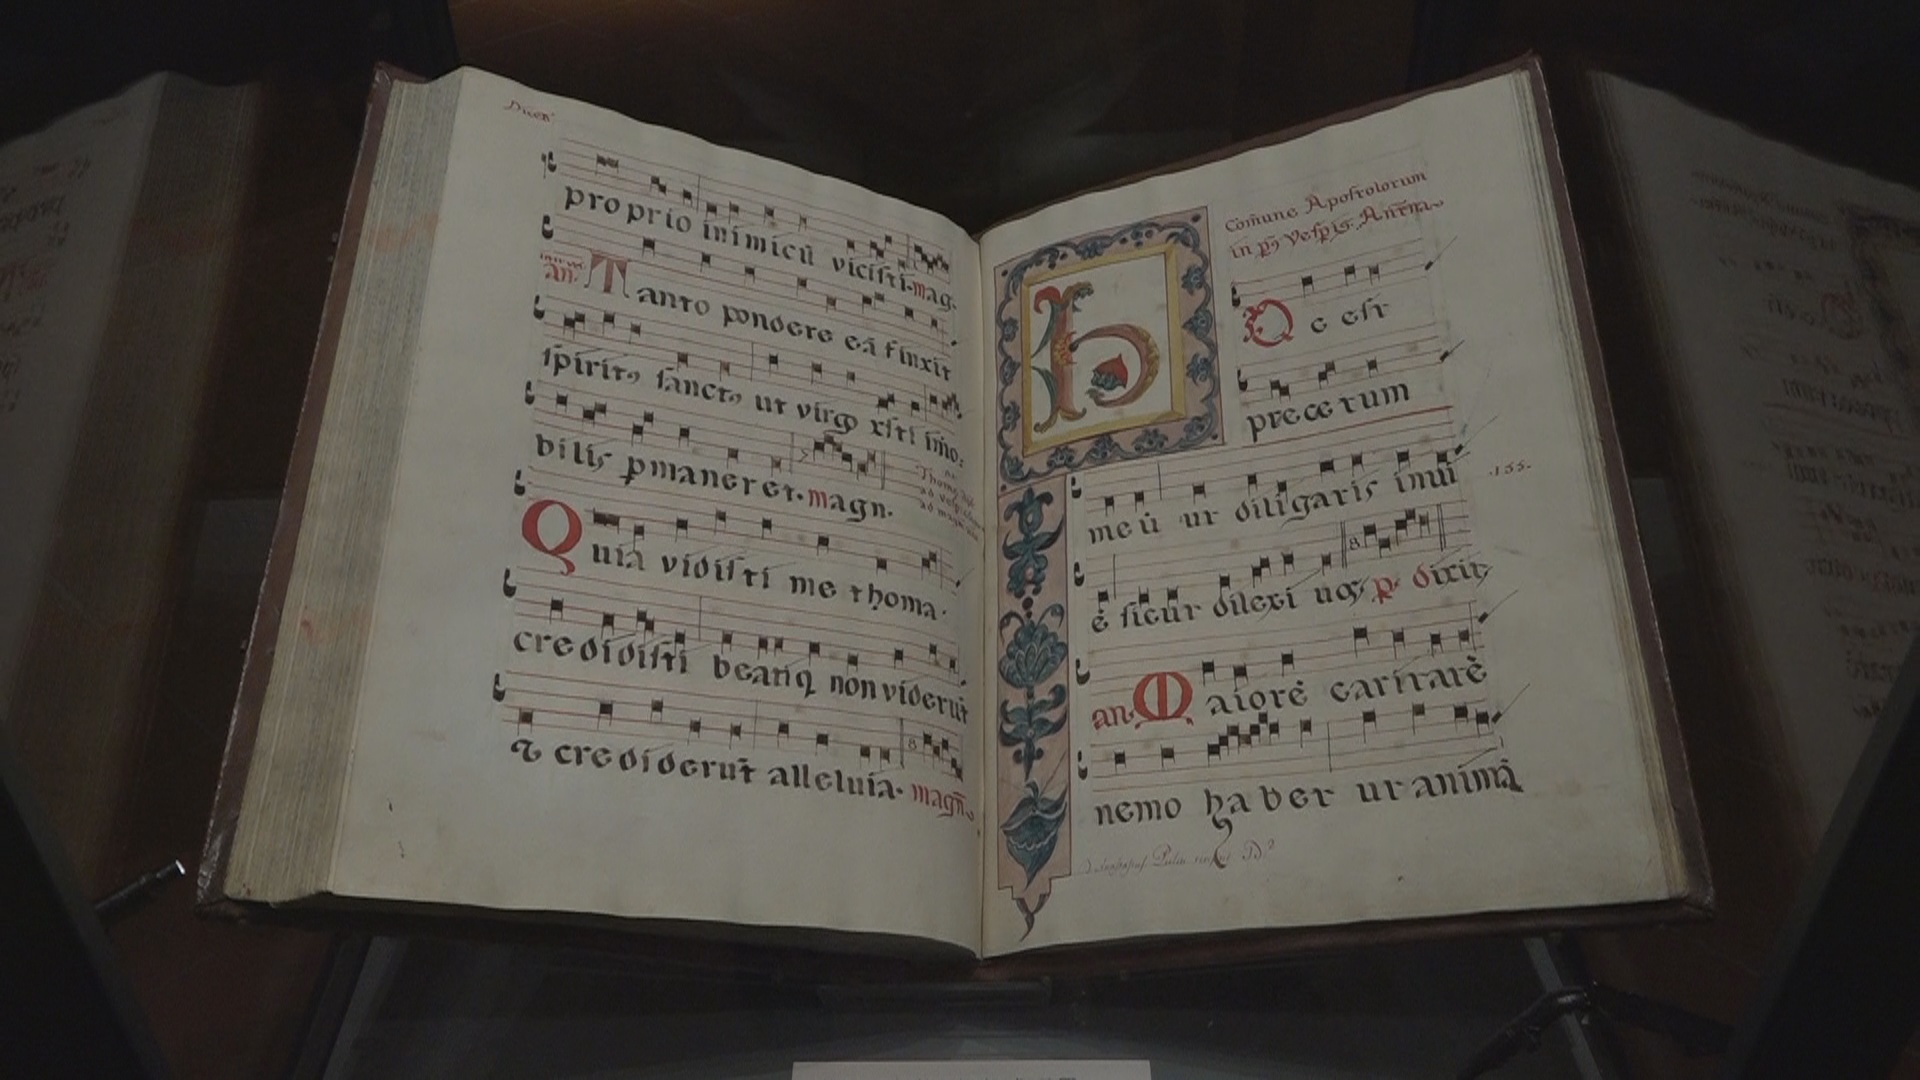 Decēb
proprio inimicū vicisti. mag.
an. Tanto pondere eā finxit
spiritꝰ sanctꝰ ut virgo xp̄i īmo-
bilis ꝑmaneret. magn.
Quia vidisti me thoma.
credidisti beatiq̨ non viderūt
⁊ crediderūt alleluia. magn̄.
Com̄une Apostolorum
in pº Vesꝑis. Antīna
H
Oc est
preceptum
meū ut diligatis invi
.155.
ē sicut dilexi uos p. dixit
an. Maiorē caritatē
nemo habet ut animā